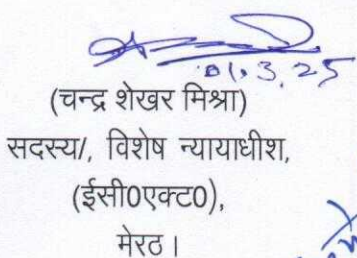 01.3.25
(चन्द्र शेखर मिश्रा)
सदस्य/, विशेष न्यायाधीश,
(ईसी0एक्ट0),
मेरठ।